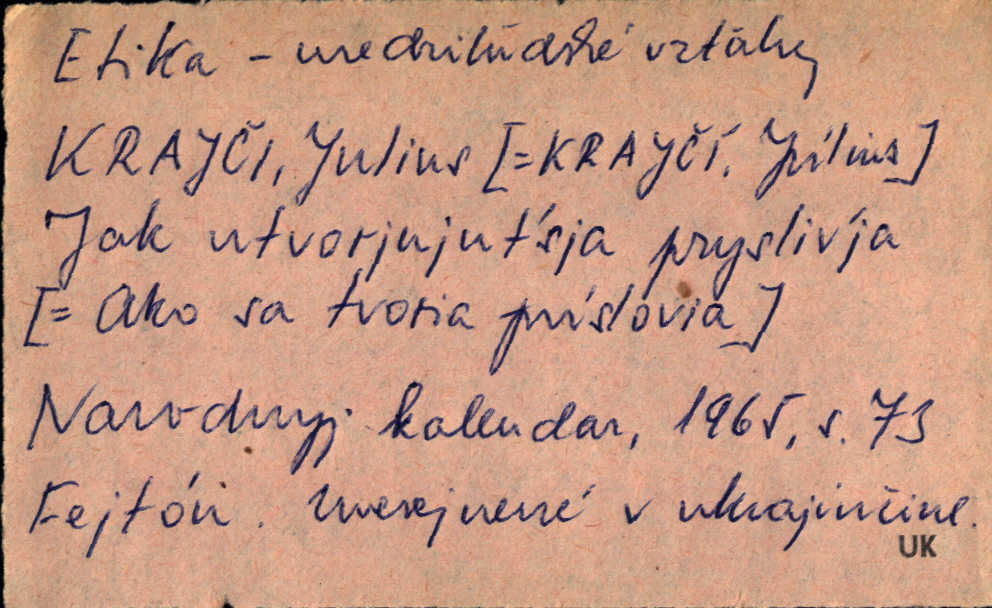 Etika - medziľudské vzťahy
KRAJČI, Julius [=KRAJČÍ, Július]
Jak utvorjujuťsja pryslivja
[= Ako sa tvoria príslovia]
Narodnyj kalendar, 1965, s. 73
Fejtón. Uverejnené v ukrajinčine.
UK